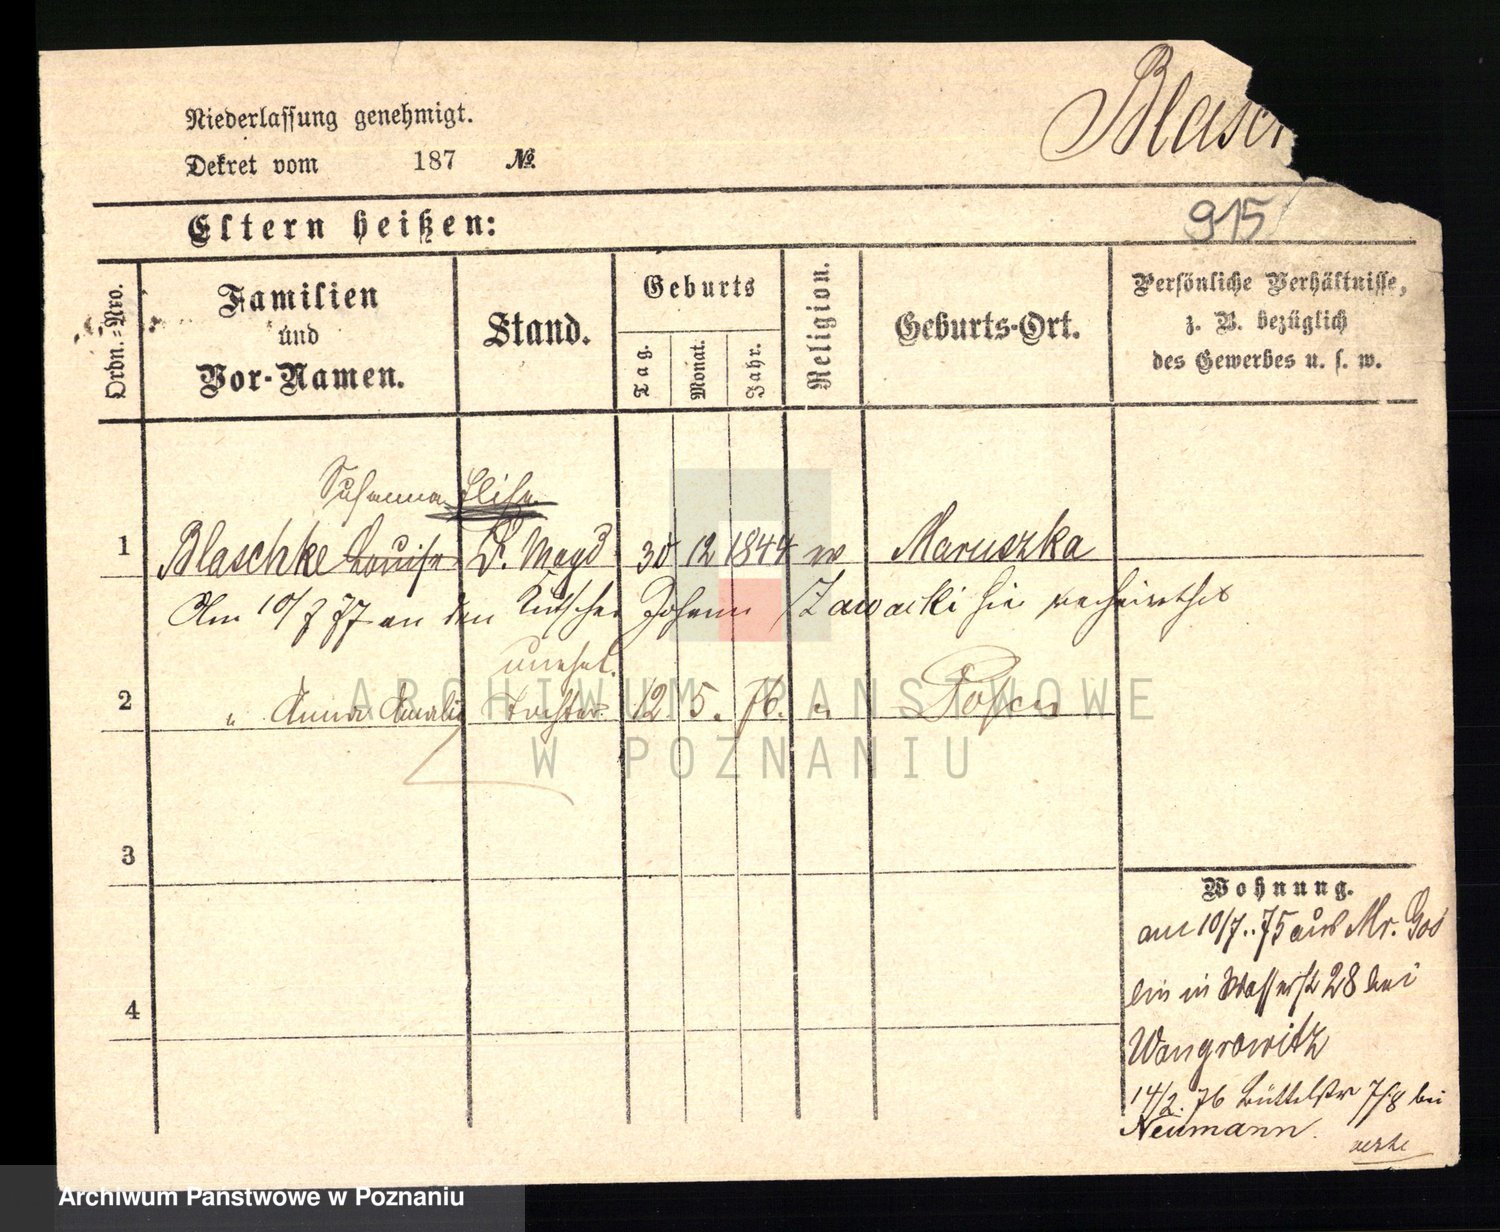 Blasch
Niederlassung genehmigt.
Dekret vom 187 №
915
Eltern heißen:
Ordn.-Nro.
Familien
und
Vor-Namen.
Stand.
Geburts
Tag.
Monat.
Jahr.
Religion.
Geburts-Ort.
Persönliche Verhältnisse,
z. B. bezüglich
des Gewerbes u. s. w.
Susanna Elisa
1 Blaschke Louise D. Magd 30 12 1844 ev Maruszka
Am 10/7 77 an den Kutscher Johann Zawacki hie verheirathet
unehel.
2 " Anna Amalie Tochter 12 5. 76. " Posen
3
4
Wohnung.
am 10/7.. 75 aus Mr. Gos
lin in Wasserst 28 bei
Wongrowitz
14/2. 76 Büttelstr 7/8 bei
Neumann.
ARCHIWUM PAŃSTWOWE
W POZNANIU
Archiwum Państwowe w Poznaniu